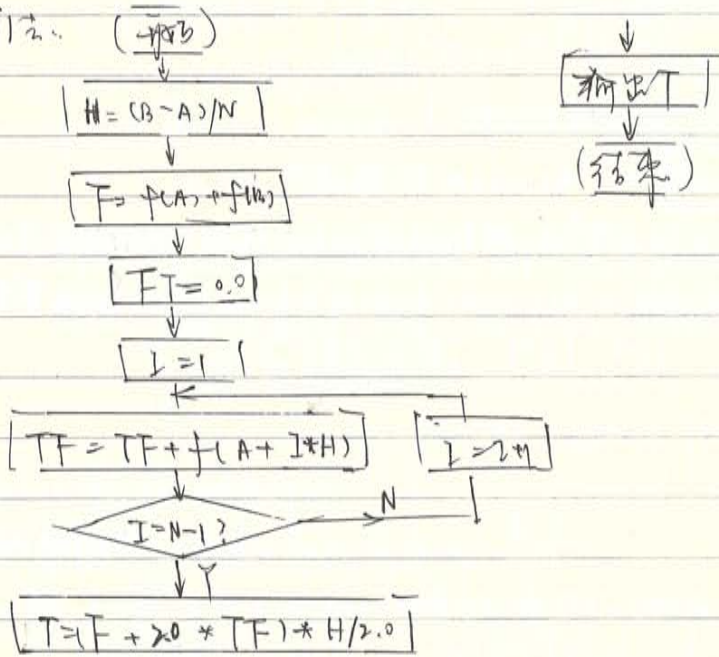 开始
H=(B-A)/N
F=f(A)+f(B)
FT=0.0
I=1
TF=TF+f(A+I*H)
I=I+1
I=N-1?
N
Y
T=(F+2.0*TF)*H/2.0
输出T
结束